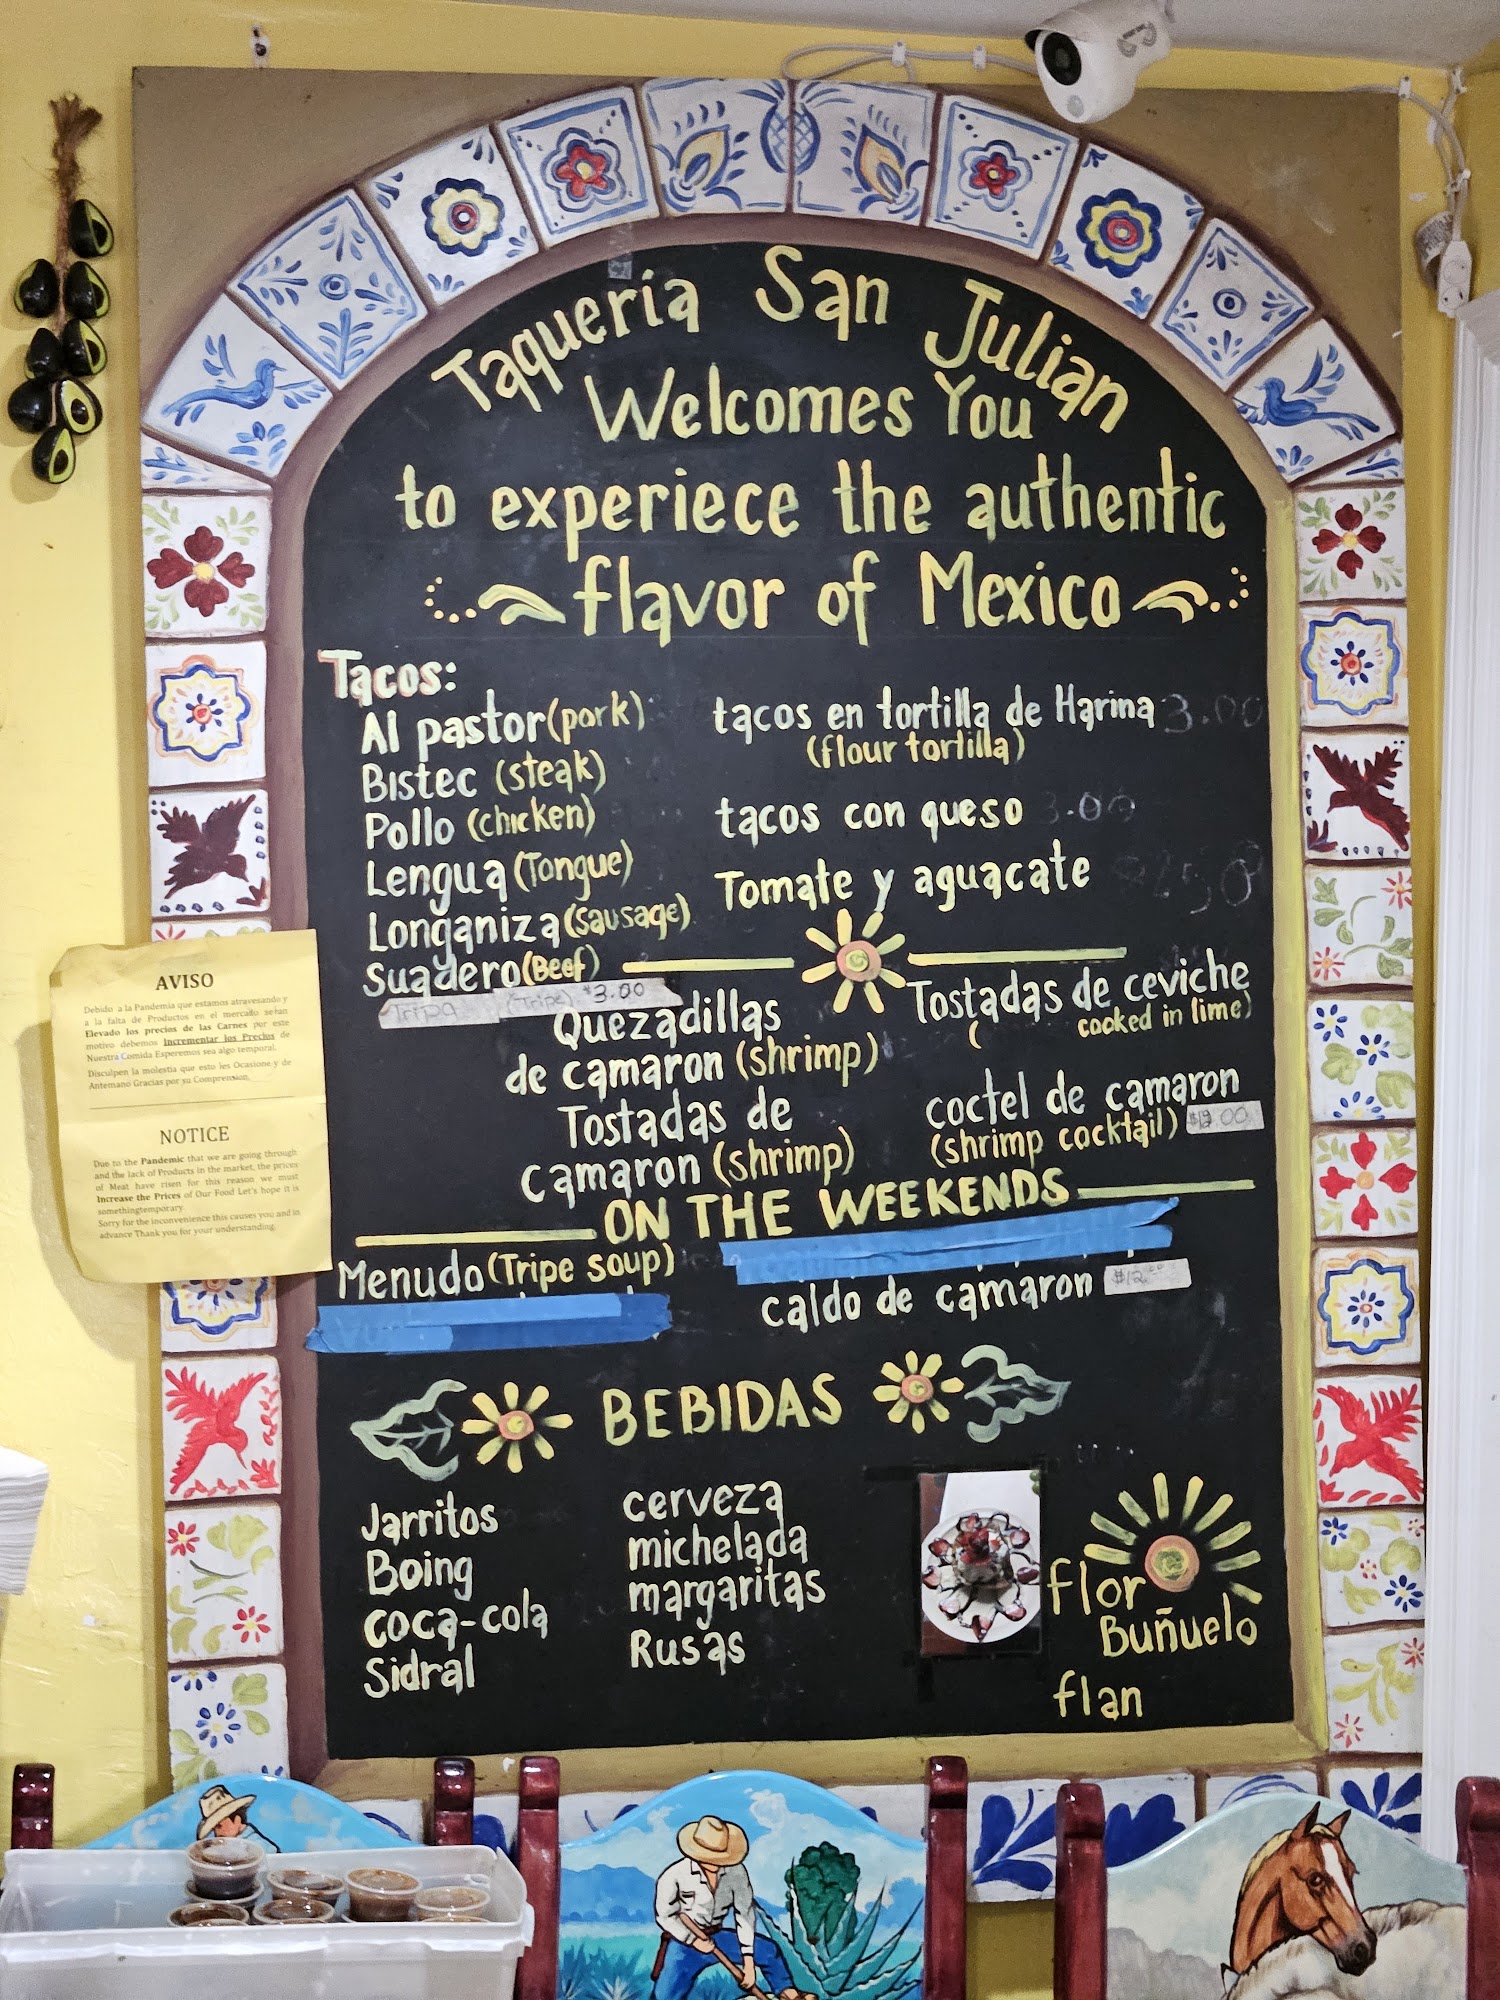 Taqueria San Julian
Welcomes You
to experiece the authentic
flavor of Mexico
Tacos:
Al pastor (pork)
Bistec (steak)
Pollo (chicken)
Lengua (Tongue)
Longaniza (sausage)
Suadero (Beef)
Tripa (Tripe) $3.00
tacos en tortilla de Harina 3.00
(flour tortilla)
tacos con queso 3.00
Tomate y aguacate
Quezadillas
de camaron (shrimp)
Tostadas de
camaron (shrimp)
Tostadas de ceviche
( cooked in lime)
coctel de camaron
(shrimp cocktail)
ON THE WEEKENDS
Menudo (Tripe soup)
caldo de camaron $12.00
BEBIDAS
Jarritos
Boing
coca-cola
Sidral
cerveza
michelada
margaritas
Rusas
flor
Buñuelo
flan
AVISO
Debido a la Pandemia que estamos atravesando y
a la falta de Productos en el mercado se han
Elevado los precios de las Carnes por este
motivo debemos Incrementar los Precios de
Nuestra Comida Esperemos sea algo temporal.
Disculpen la molestia que esto les Ocasione y de
Antemano Gracias por su Comprension.
NOTICE
Due to the Pandemic that we are going through
and the lack of Products in the market, the prices
of Meat have risen for this reason we must
Increase the Prices of Our Food Let's hope it is
somethingtemporary
Sorry for the inconvenience this causes you and in
advance Thank you for your understanding.